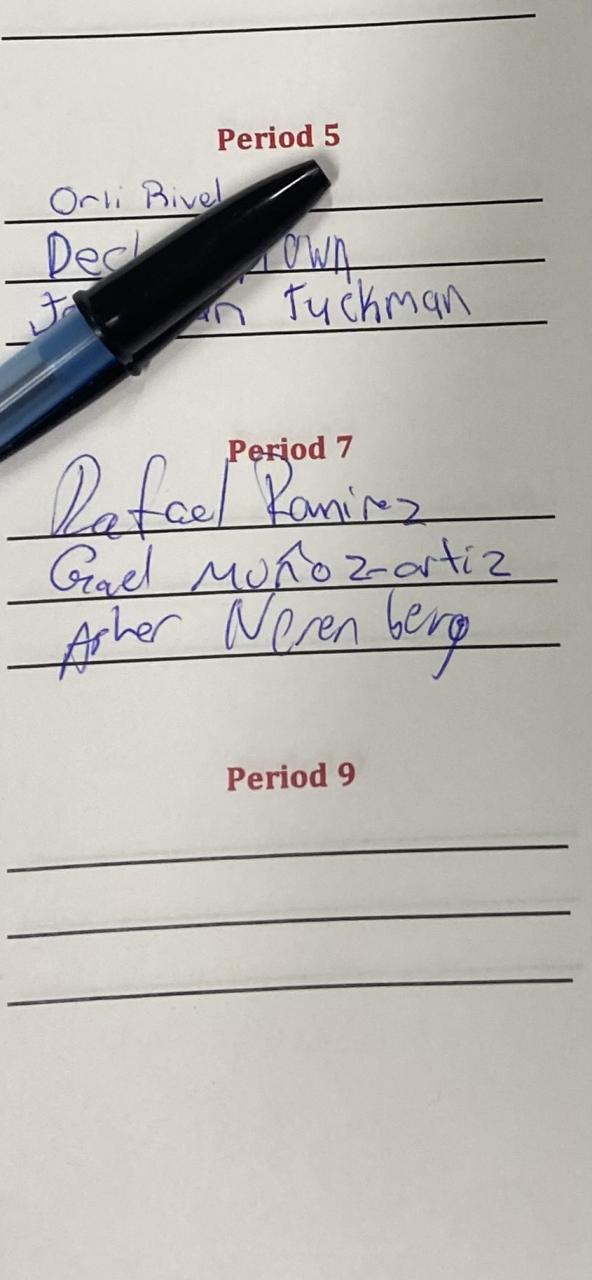 Period 5
Orli Rivel
Tuckman
Period 7
Rafael Ramirez
Gael Muñoz-ortiz
Asher Nerenberg
Period 9